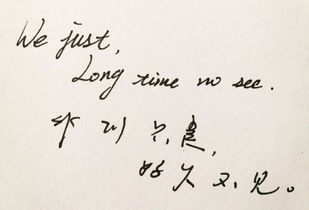 We just,
Long time no see.
我们只是,
好久不见。